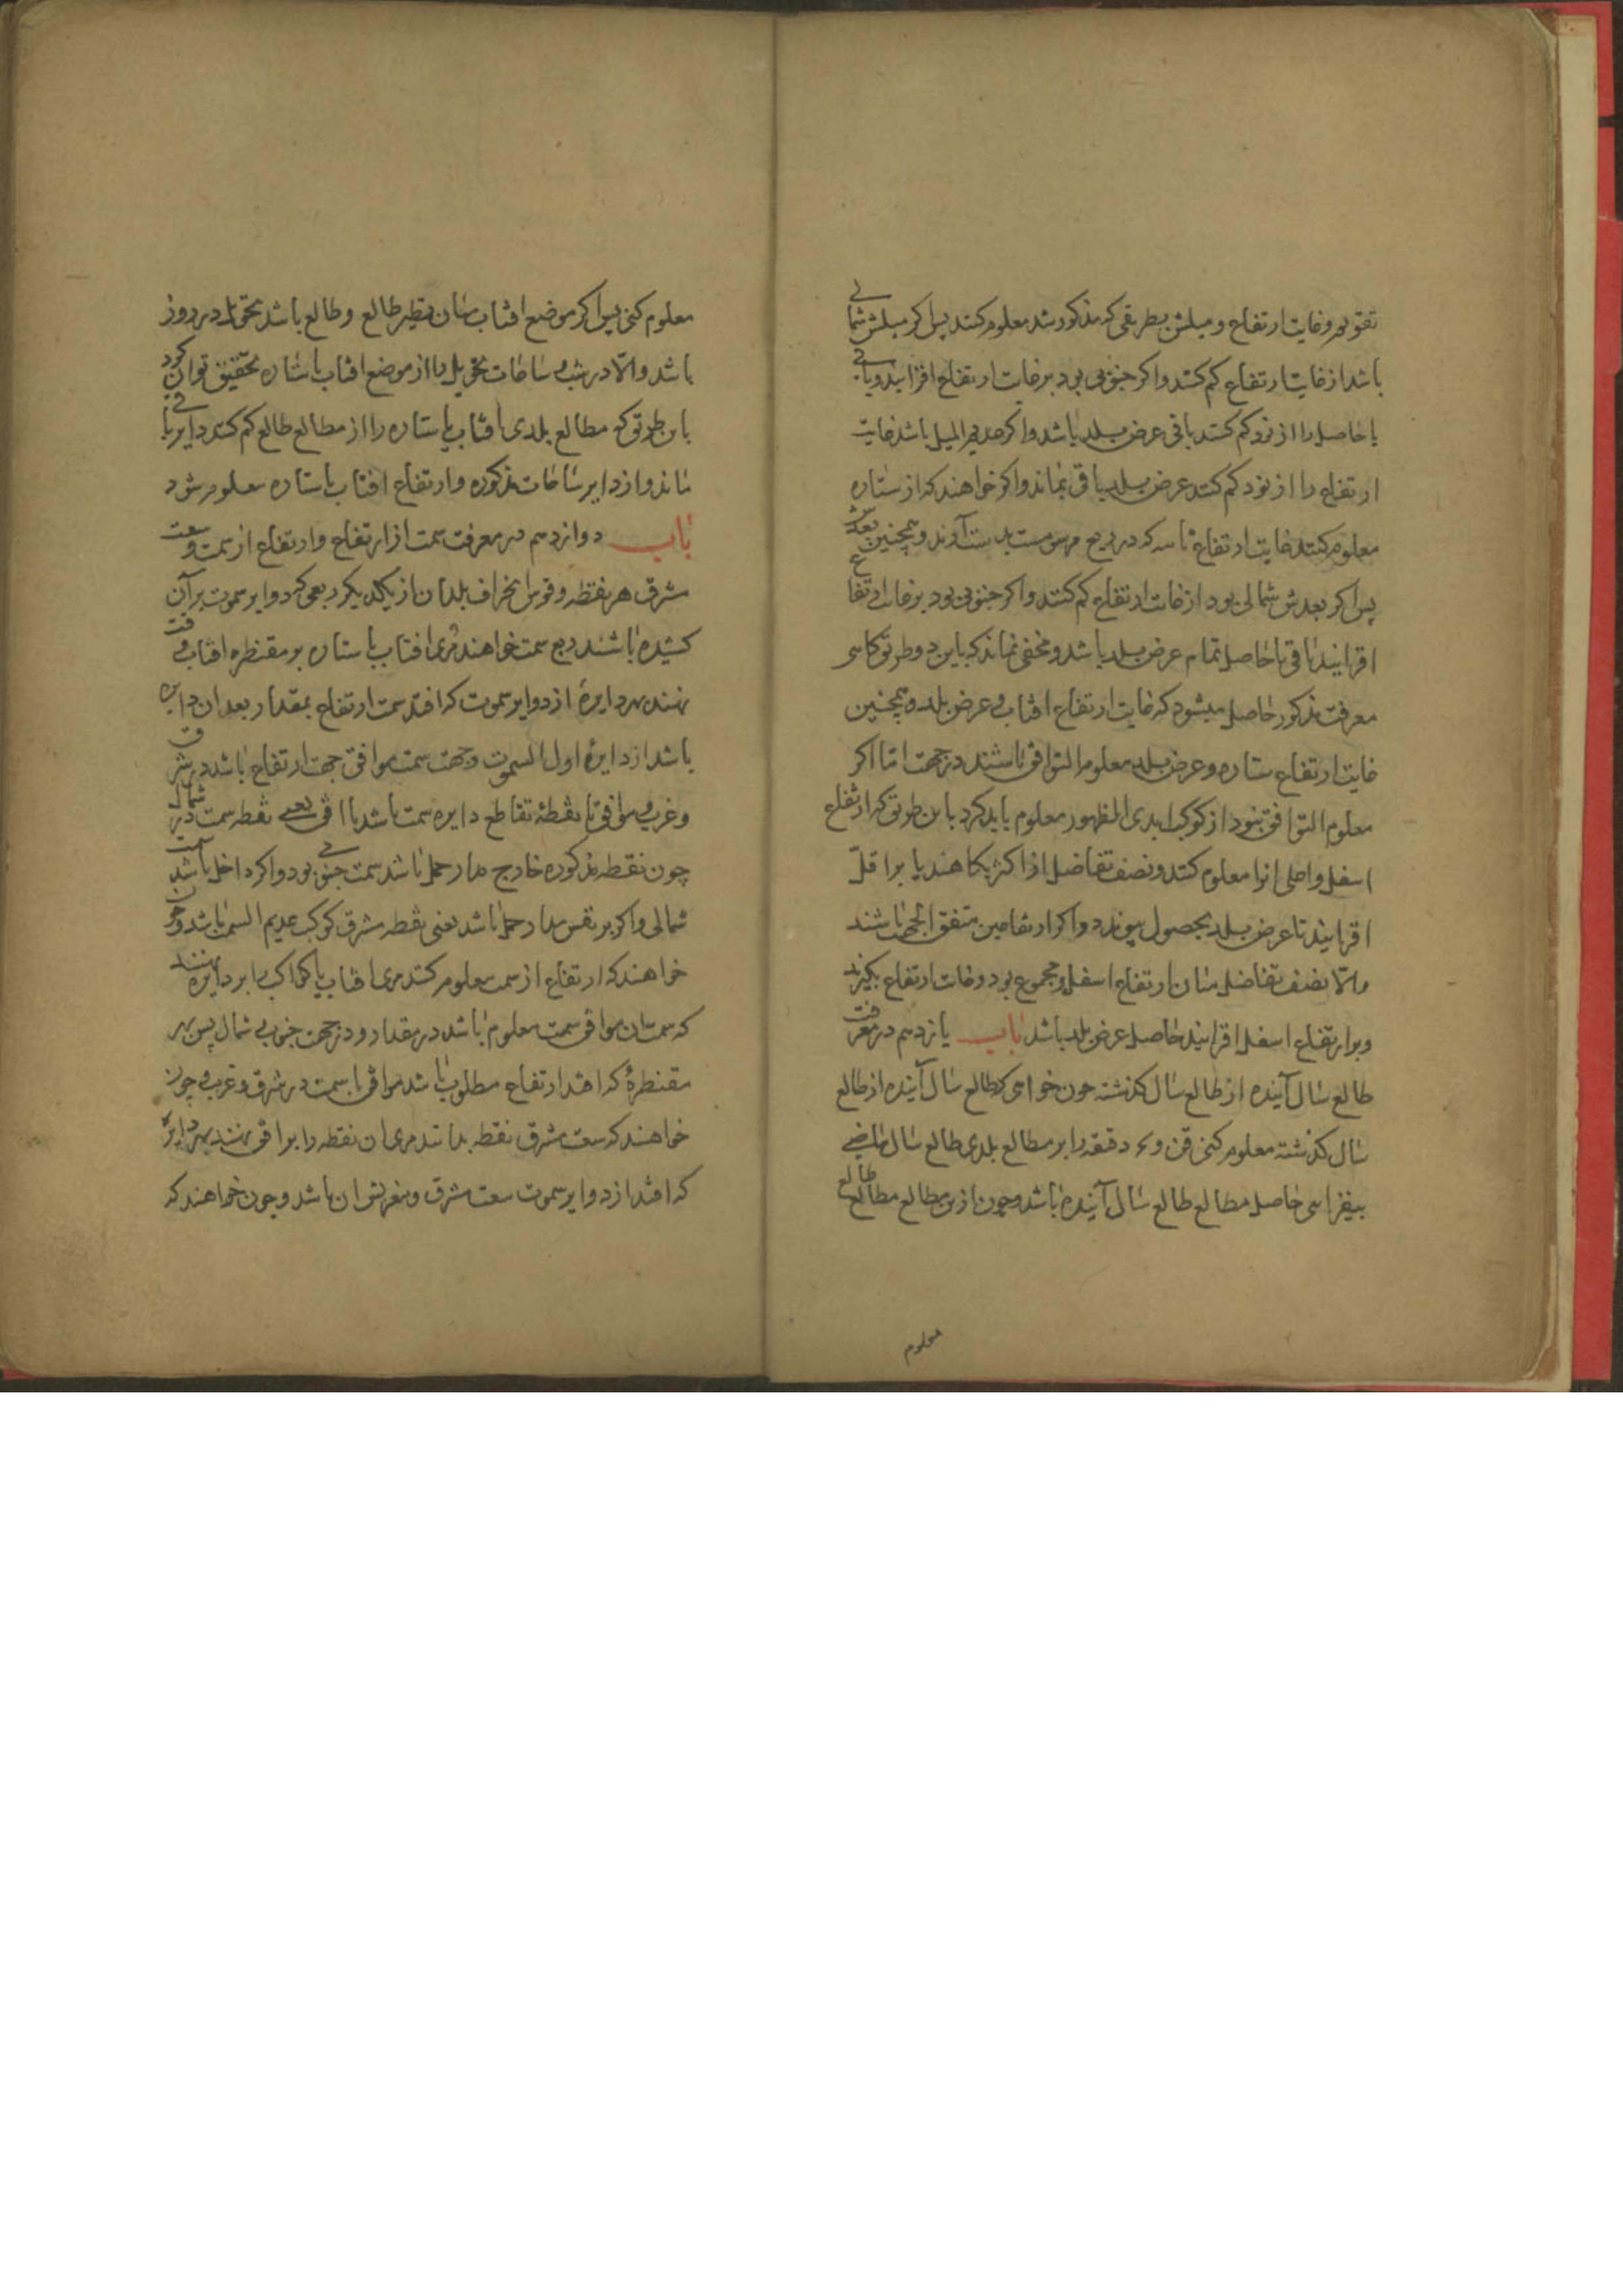 تقویم و غایت ارتفاع و میلش بطریقی که مذکور شد معلوم کنند پس اکر میلش شمالی
باشد از غایت ارتفاع کم کنند و اکر جنوبی بود بر غایت ارتفاع افزایند و باقی
یا حاصل را از نود کم کنند باقی عرض بلد باشد و اکر عدیم المیل باشد غایت
ارتفاع را از نود کم کنند عرض بلد باقی بماند و اکر خواهند که از ستاره
معلوم کنند غایت ارتفاع بدست آورند و همچنین بعدش
پس اکر بعدش شمالی بود از غایت ارتفاع کم کنند و اکر جنوبی بود بر غایت ارتفاع
افزایند باقی یا حاصل تمام عرض بلد باشد و مخفی نماند که باین دو طریق کاهی
معرفت مذکور حاصل میشود که غایت ارتفاع افتاب و عرض بلد و همچنین
غایت ارتفاع ستاره و عرض بلد معلوم التوافق باشند در جهت اما اکر
معلوم التوافق نبود از کوکب ابدی الظهور معلوم باید کرد باین طریق که ارتفاع
اسفل و اعلی انرا معلوم کنند و نصف تفاضل از اکثر بکاهند یا بر اقل
افزایند تا عرض بلد بحصول پیوندد و اکر ارتفاعین متفق الجهة باشند
والا نصف تفاضل میان ارتفاع اسفل و مجموع نود و غایت ارتفاع بکیرند
و بر ارتفاع اسفل افزایند حاصل عرض بلد باشد باب یازدهم در معرفت
طالع سال آینده از طالع سال کذشته چون خواهی که طالع سال آینده از طالع
سال کذشته معلوم کنی دقیقه را بر مطالع بلدی طالع سال ماضی
بیفزای حاصل مطالع طالع سال آینده باشد و چون ازین مطالع مطالع طالع
معلوم
معلوم کنی پس اکر موضع افتاب میان نظیر طالع و طالع باشد تحویل در روز
باشد والا در شب و ساعات تحویل را از موضع افتاب یا ستاره تحقیق توان کرد
باین طریق که مطالع بلدی افتاب یا ستاره را از مطالع طالع کم کنند دایر باقی
ماند و از دایر ساعات مذکوره و ارتفاع افتاب یا ستاره معلوم شود
باب دوازدهم در معرفت سمت از ارتفاع و ارتفاع از سمت و سعت
مشرق هر نقطه و قوس انحراف بلدان از یکدیکر ربعی که دوایر سموت بر آن
کشیده باشند ربع سمت خواهند مری افتاب یا ستاره بر مقنطره افتاب وقت
نهند هر دایرهٔ از دوایر سموت که افتد سمت ارتفاع بمقدار بعد ان دایره
باشد از دایرهٔ اول السموت و جهت سمت موافق جهت ارتفاع باشد در شرق
و غرب و موافق با نقطهٔ تقاطع دایره سمت باشد با افق یعنی نقطه سمت در شمال
چون نقطه مذکوره خارج مدار حمل باشد سمت جنوبی بود و اکر داخل باشد سمت
شمالی و اکر بر نفس مدار حمل باشد یعنی نقطه مشرق کوکب عدیم السمت باشد و چون
خواهند که ارتفاع از سمت معلوم کنند مری افتاب یا کواکب را بر دایره نهند
که سمتان موافق سمت معلوم باشد در مقدار و در جهت جنوب و شمال پس بهر
مقنطرهٔ که افتد ارتفاع مطلوب باشد موافق با سمت در شرق و غرب و چون
خواهند که سعت مشرق نقطه بدانند مری ان نقطه را بر افق نهند بهر دایرهٔ
که افتد از دوایر سموت سعت مشرق و مغربش ان باشد و چون خواهند که